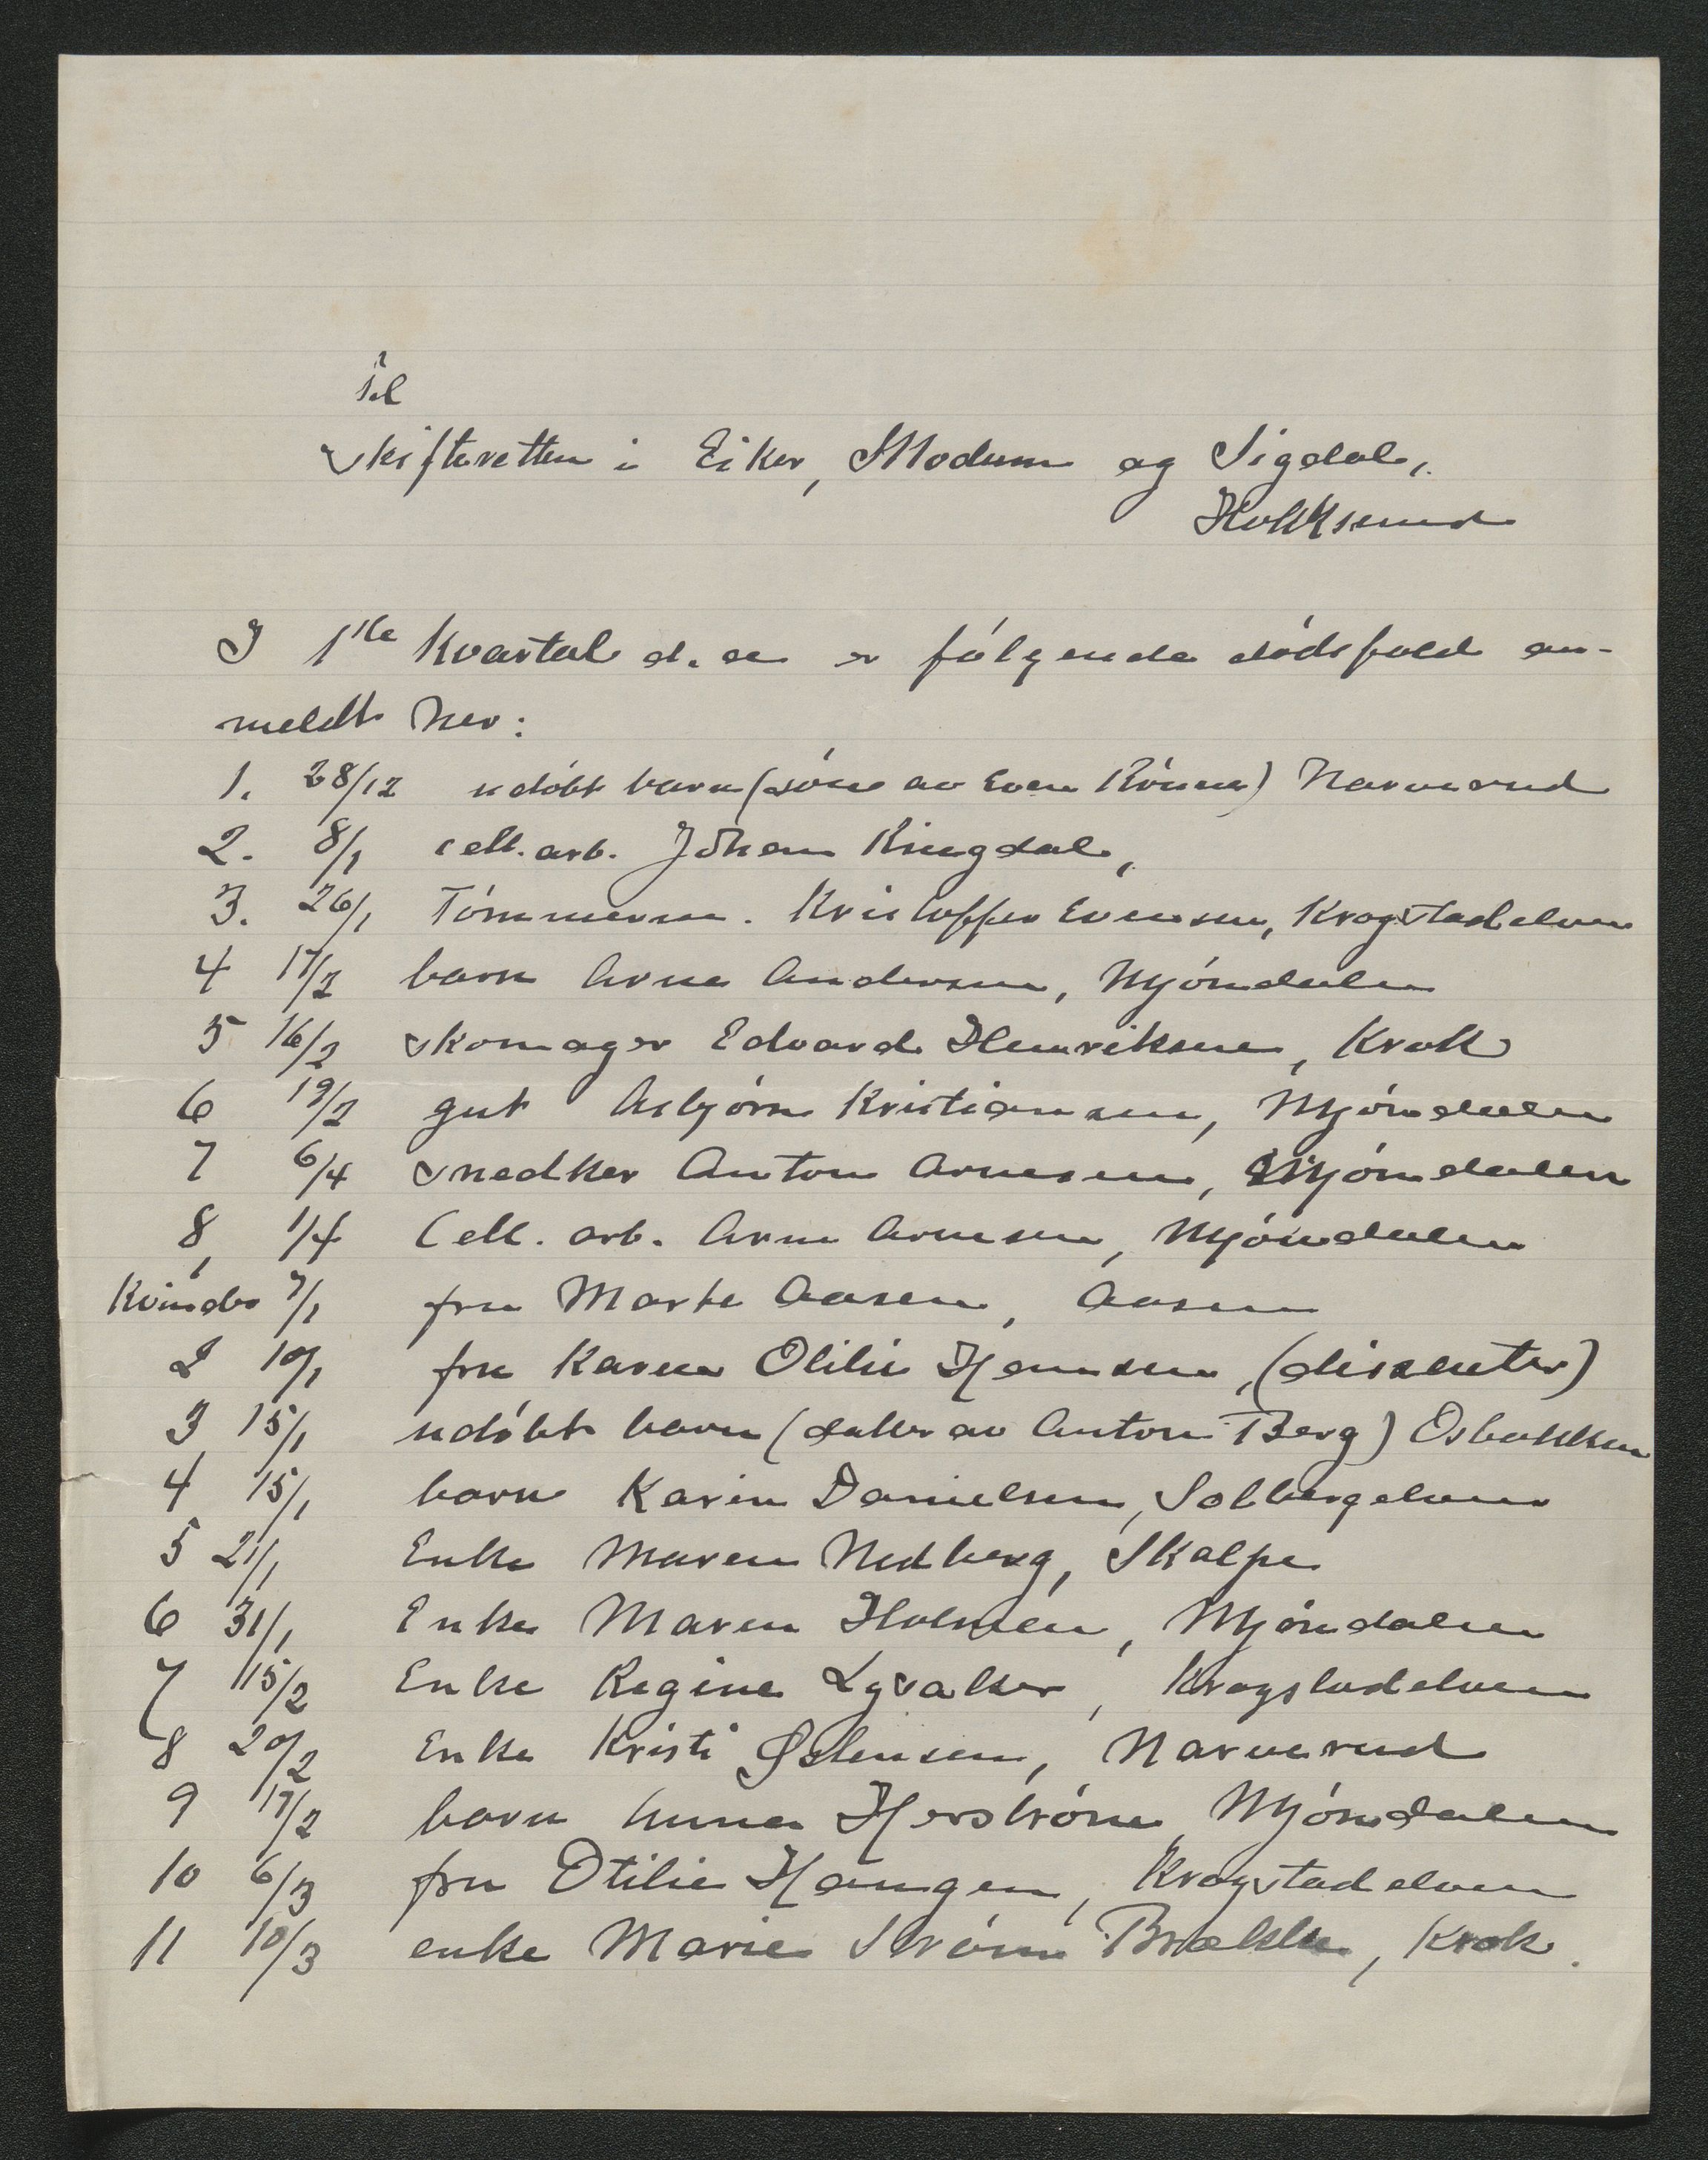 Til
Skifteretten i Eiker, Modum og Sigdal,
Hokksund
I 1ste Kvartal d. aa er følgende dødsfald an-
meldt her:
1. 28/12 udøbt barn (søn av Even Rønne) Narverud
2. 8/1 cell. arb. Johan Ringdal,
3. 26/1 Tømmerm. Kristoffer Evensen, Krogstadelven
4 17/2 barn Arne Andersen, Mjøndalen
5 16/2 skomager Edvard Henriksen, Krok
6 19/2 gut Asbjørn Kristiansen, Mjøndalen
7 6/4 snedker Anton Arnesen, Mjøndalen
8, 1/4 Cell. arb. Arne Arnesen, Mjøndalen
Kvinder 7/1 fru Marte Aasen, Aasen
2 10/1 fru Karen Otilie Hansen, (dissenter)
3 15/1 udøbt barn (datter av Anton Berg) Osbakken
4 15/1 barn Karin Danielsen, Solbergelven
5 21/1 Enke Maren Nedberg, Skalpe
6 31/1 Enke Maren Holmen, Mjøndalen
7 15/2 Enke Regine Lysaker, Krogstadelven
8 20/2 Enke Kristi Østensen, Narverud
9 17/2 barn Anna Herstrøm Mjøndalen
10 6/3 fru Otilie Haugen, Krogstadelven
11 10/3 enke Marie Strøm Brække, Krok.